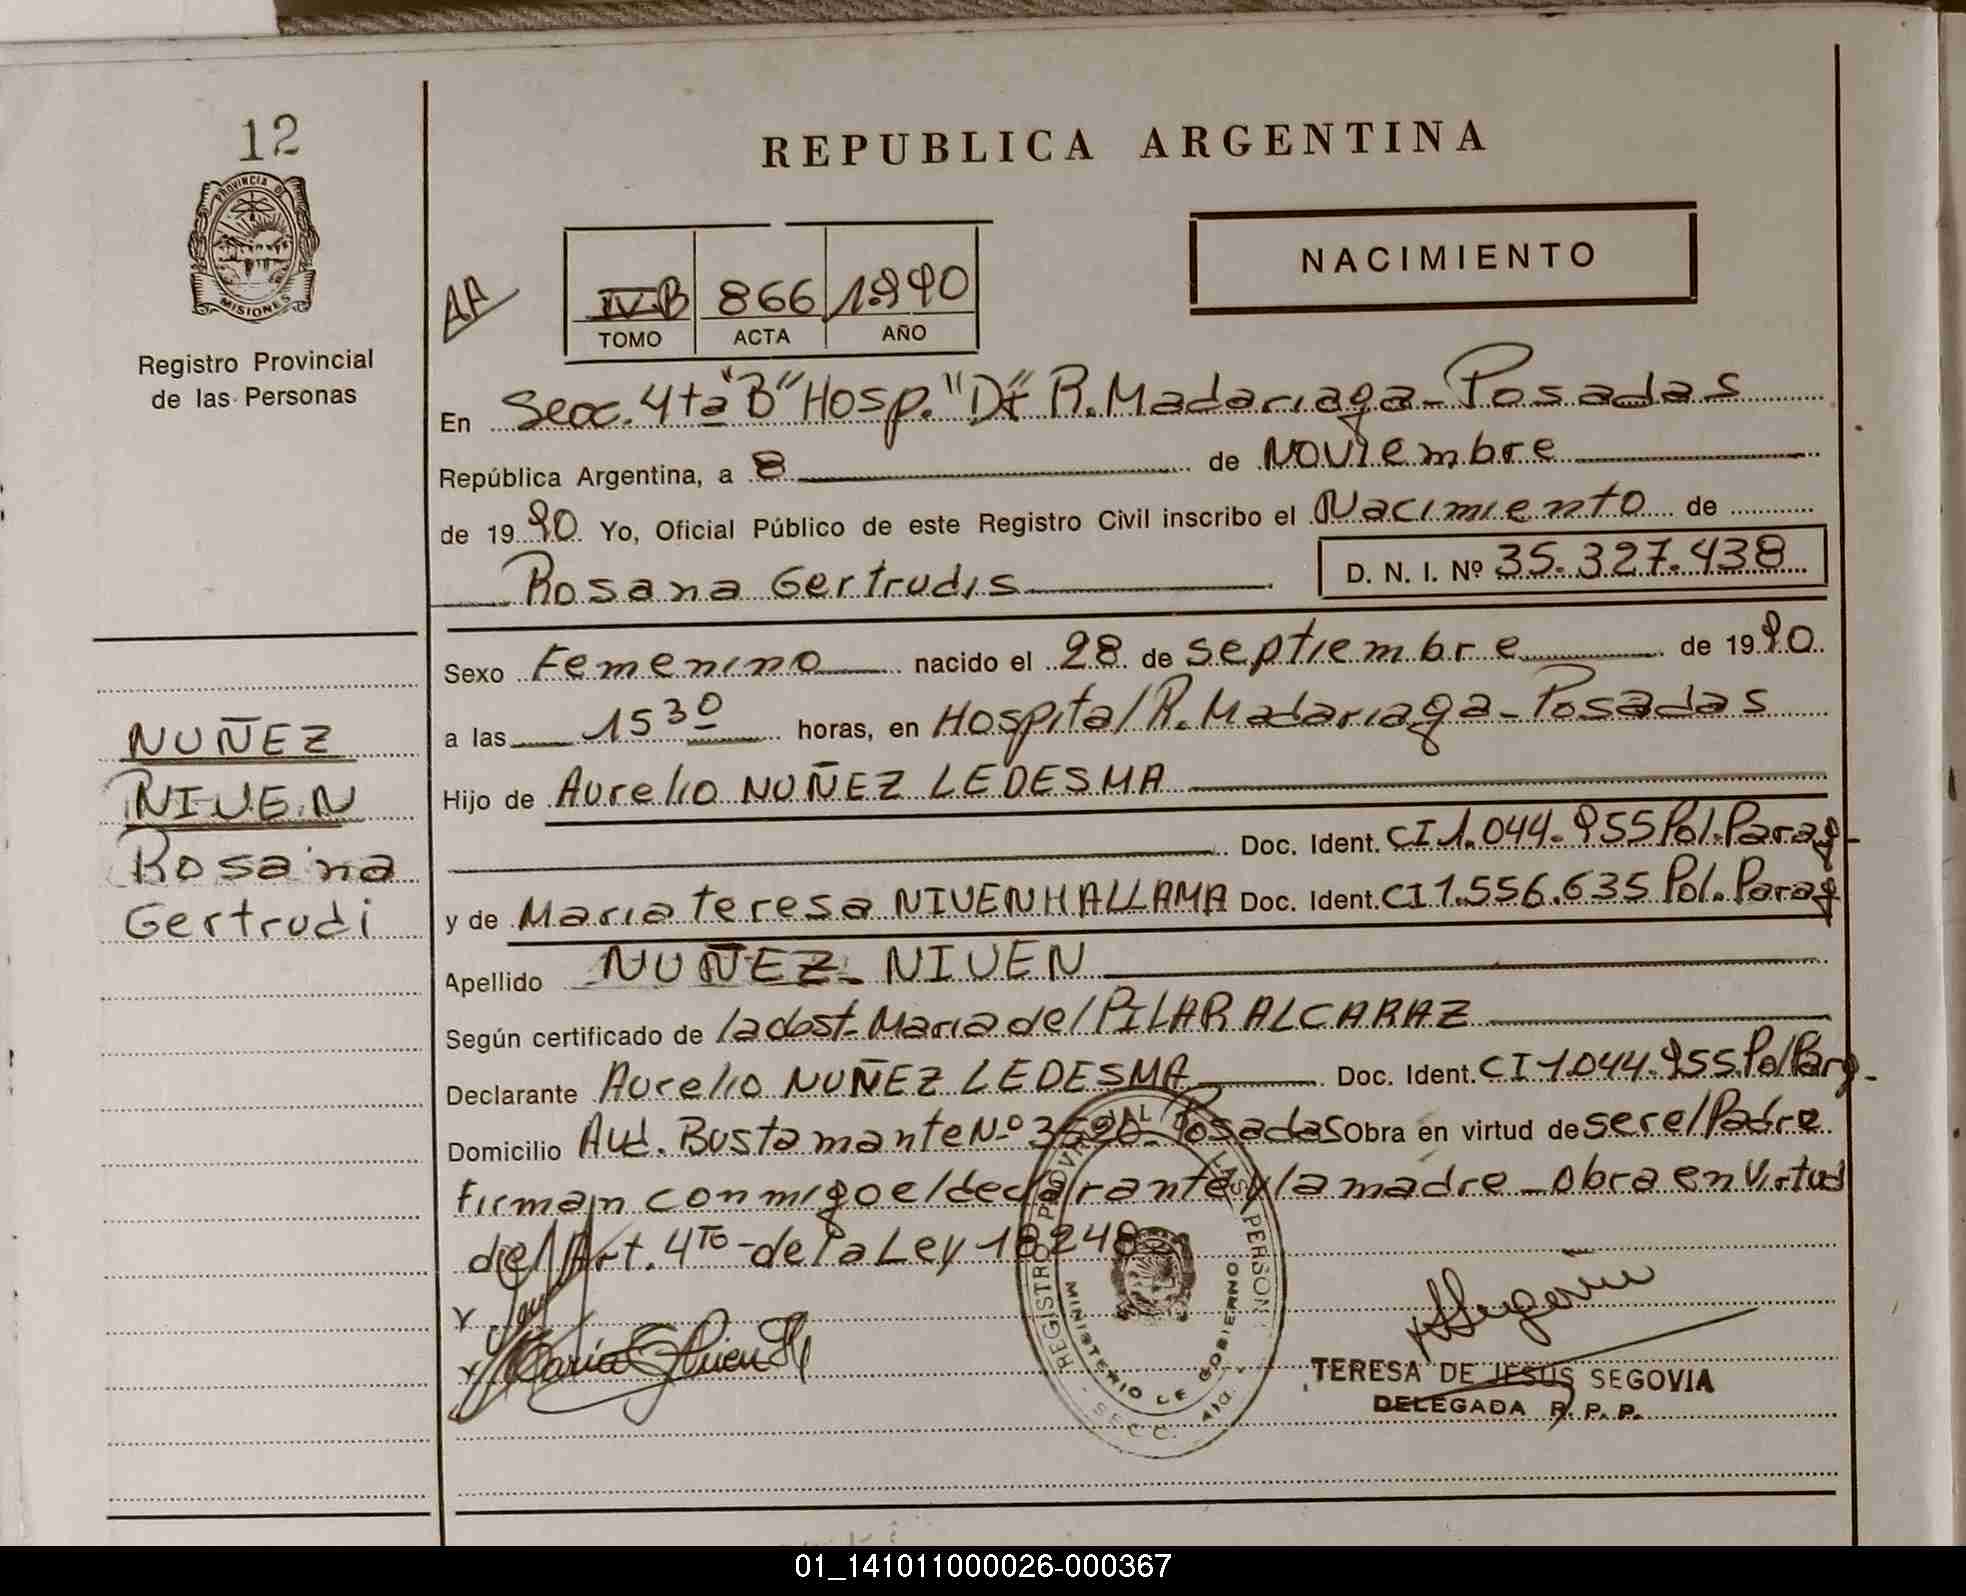 12
PROVINCIA DE
MISIONES
Registro Provincial
de las Personas
NUÑEZ
NIUEN
Rosana
Gertrudi
REPUBLICA ARGENTINA
NACIMIENTO
AA
IV-B 866 1.990
TOMO ACTA AÑO
En Secc. 4ta "B" Hosp. "Dr R. Madariaga - Posadas
República Argentina, a 8 de Noviembre
de 1990 Yo, Oficial Público de este Registro Civil inscribo el Nacimiento de
Rosana Gertrudis D. N. I. Nº 35.327.438
Sexo Femenino nacido el 28 de septiembre de 1990
a las 15 30 horas, en Hospital R. Madariaga - Posadas
Hijo de Aurelio NUÑEZ LEDESMA
Doc. Ident. CI 1.044.955 Pol. Parag-
y de Maria Teresa NIUENHALLAMA Doc. Ident. CI 1.556.635 Pol. Parag
Apellido NUÑEZ - NIUEN
Según certificado de la obst. Maria del PILAR ALCARAZ
Declarante Aurelio NUÑEZ LEDESMA Doc. Ident. CI 1.044.955 Pol Parg-
Domicilio Aud. Bustamante Nº Posadas Obra en virtud de ser el Padre
Firman conmigo el declarante y la madre - obra en virtud
del Art. 4TO - de la Ley 18248
REGISTRO PROVINCIAL LAS PERSON
MINISTERIO DE GOBIERNO
SECC. 4ta.
TERESA DE JESUS SEGOVIA
DELEGADA R. P. P.
01_141011000026-000367